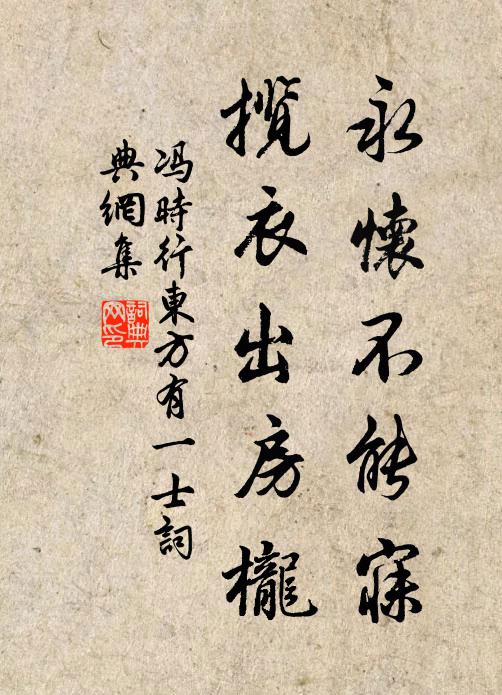 永懷不能寐
攬衣出房櫳
馮時行東方有一士詞
典網集
詞典网印